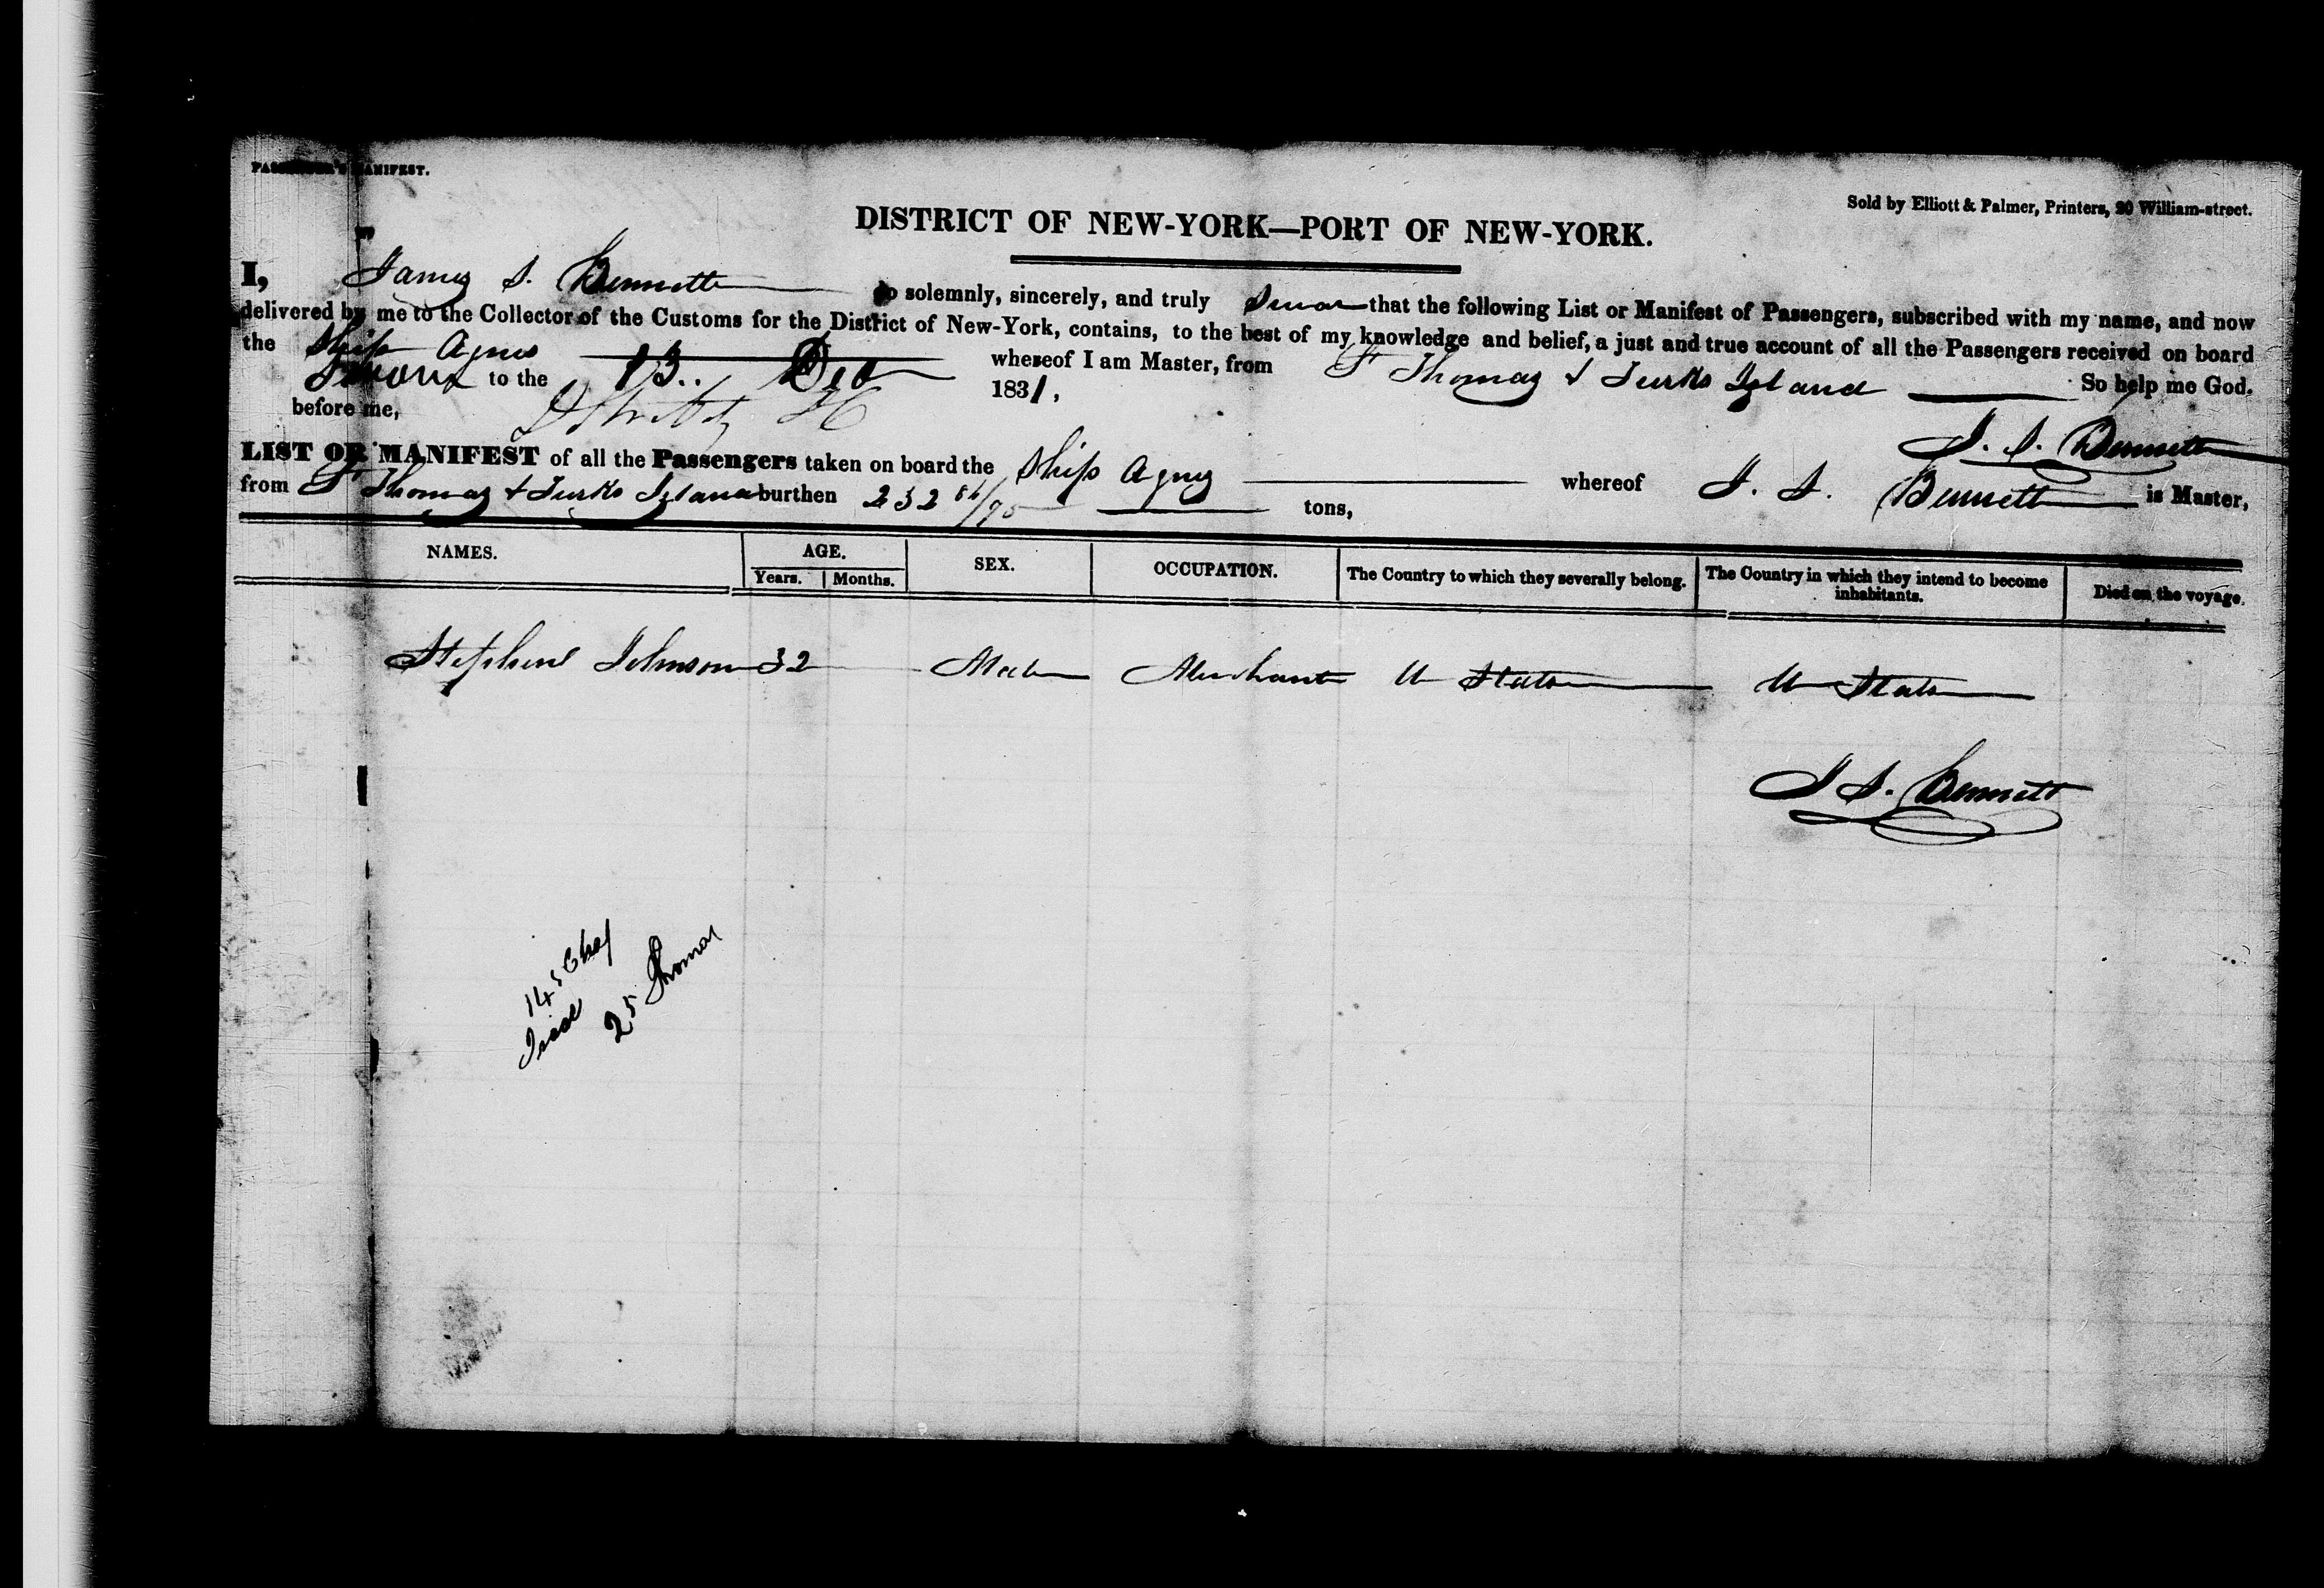 PASSENGER'S MANIFEST.
Sold by Elliott & Palmer, Printers, 20 William-street.
DISTRICT OF NEW-YORK—PORT OF NEW-YORK.
I, James S. Bennett do solemnly, sincerely, and truly Swear that the following List or Manifest of Passengers, subscribed with my name, and now
delivered by me to the Collector of the Customs for the District of New-York, contains, to the best of my knowledge and belief, a just and true account of all the Passengers received on board
the Ship Agnes whereof I am Master, from St Thomas & Turks Island So help me God.
Sworn to the 13.. Dec 1831,
before me,
J. S. Bennett
LIST OR MANIFEST of all the Passengers taken on board the Ship Agnes whereof J. S. Bennett is Master,
from St Thomas & Turks Island burthen 232 56/95 tons,
NAMES. AGE. SEX. OCCUPATION. The Country to which they severally belong. The Country in which they intend to become inhabitants. Died on the voyage.
Years. Months.
Stephen Johnson 32 Male Merchant U States U States
J S. Bennett
145
25 Thomas